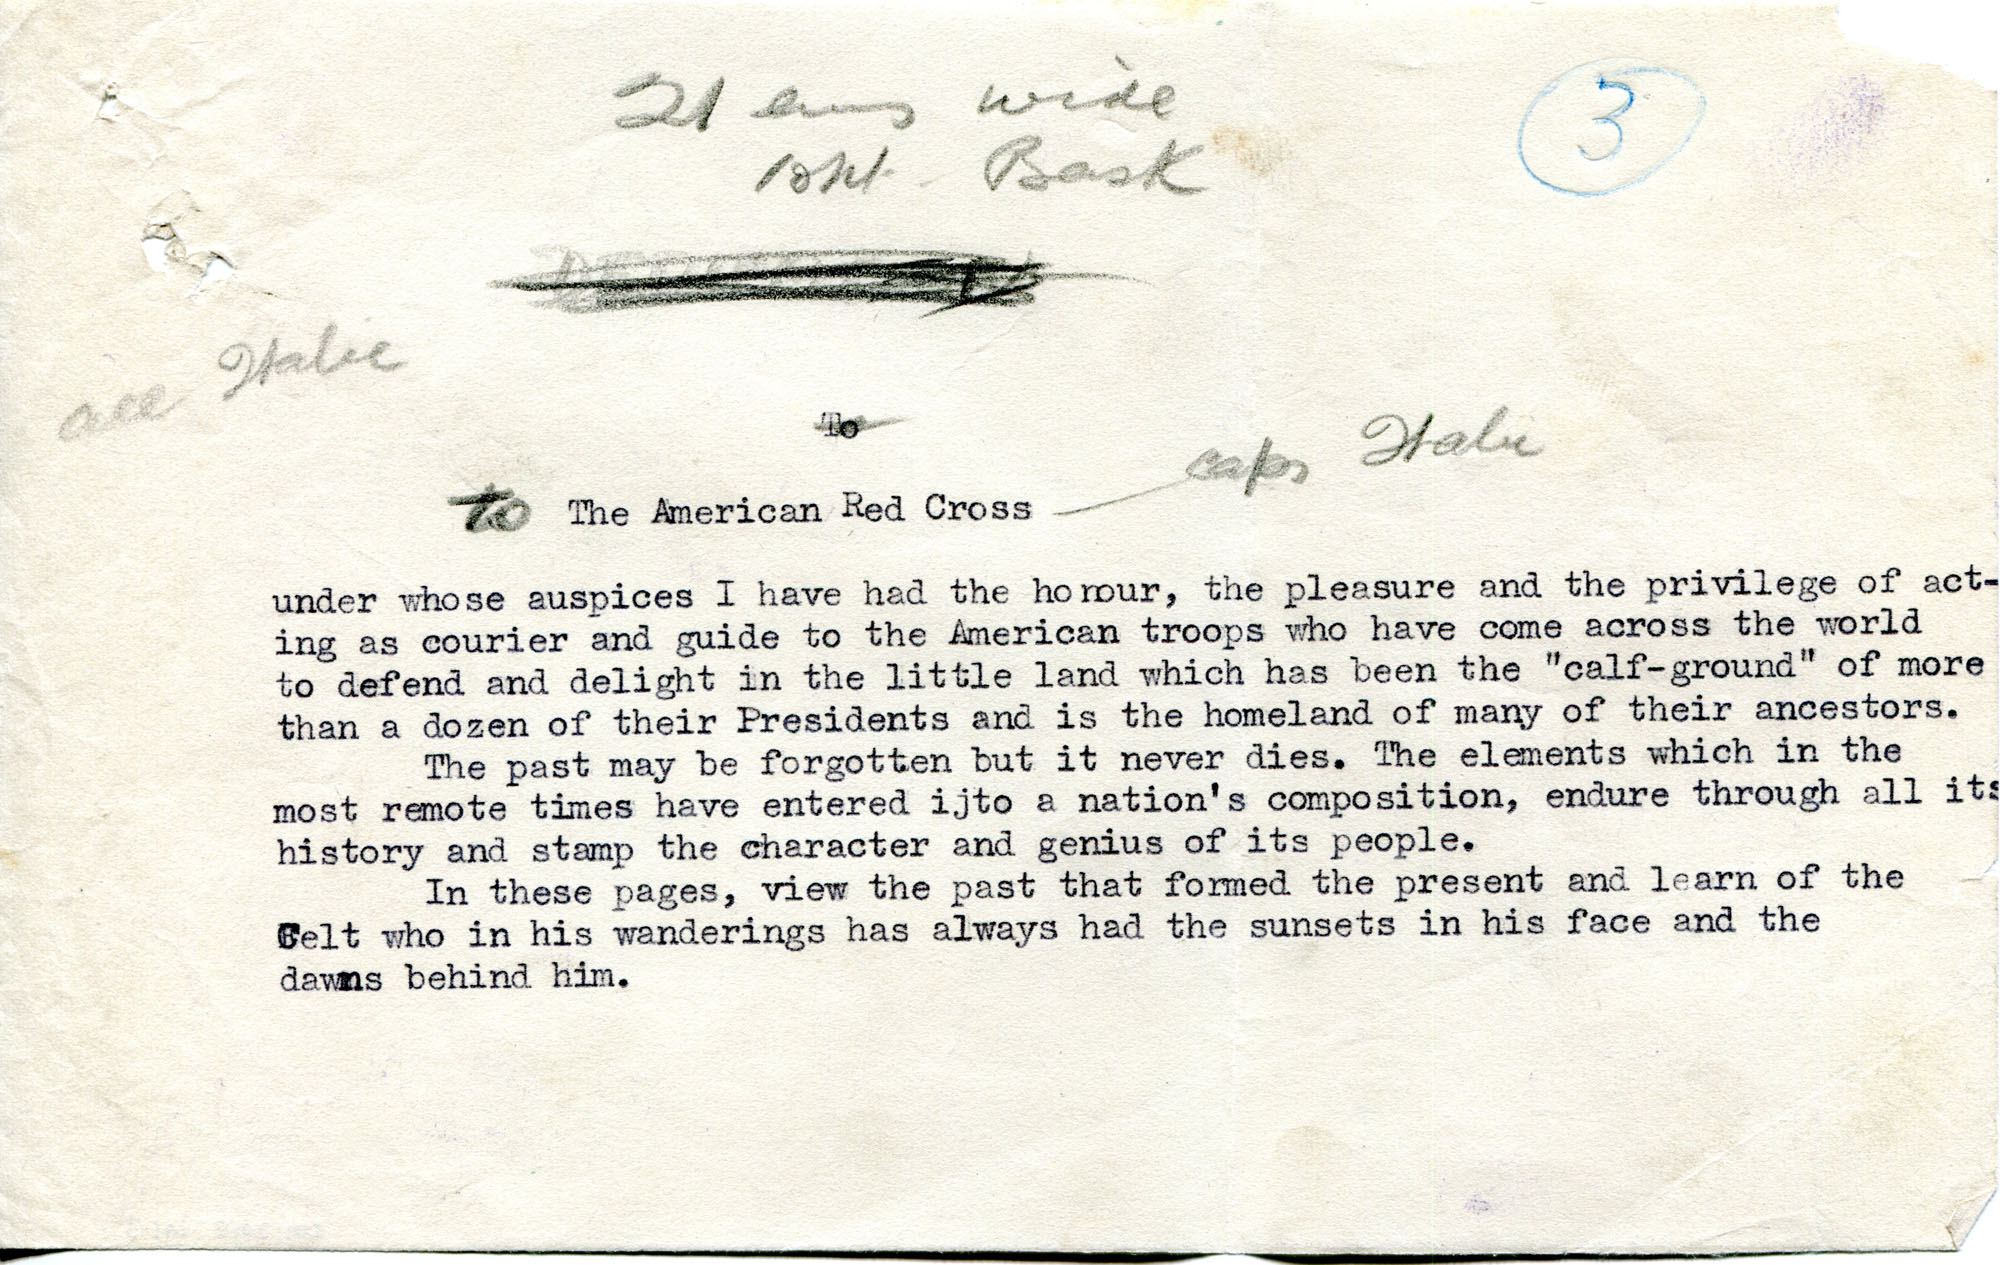 21 ems wide
10pt. Bask
3
all Italic
To
caps Italic
to The American Red Cross
under whose auspices I have had the honour, the pleasure and the privilege of act-
ing as courier and guide to the American troops who have come across the world
to defend and delight in the little land which has been the "calf-ground" of more
than a dozen of their Presidents and is the homeland of many of their ancestors.
The past may be forgotten but it never dies. The elements which in the
most remote times have entered ijto a nation's composition, endure through all its
history and stamp the character and genius of its people.
In these pages, view the past that formed the present and learn of the
Celt who in his wanderings has always had the sunsets in his face and the
dawns behind him.